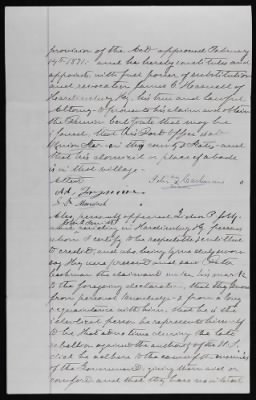 provision of the Act approved February
14th 1871. and he hereby constitutes and
appoints, with full power of substitution
and revocation James C. of
Hardinsburg Ky, his true and lawful
Attorney to prosecute his claim and obtain
the Pension Certificate that may be
issued, that his Post Office is at
Union Star in the county & State, and
that his domicil or place of abode
is in that village.
Attest Peter his x mark Cashman
Also personally appeared
residing in Hardinsburg Ky persons
whom I certify to be respectable & entitled
to credit, and who being by me duly sworn
say they were present and saw Peter
Cashman the claimant make his mark
to the foregoing declaration, that they know
from personal knowledge & from a long
acquaintance with him that he is the
identical person he represents himself
to be that at no time during the late
rebellion against the authority of the U.S.
did he adhere to the cause of the enemies
of the Government, giving them aid or
comfort and that they have no interest